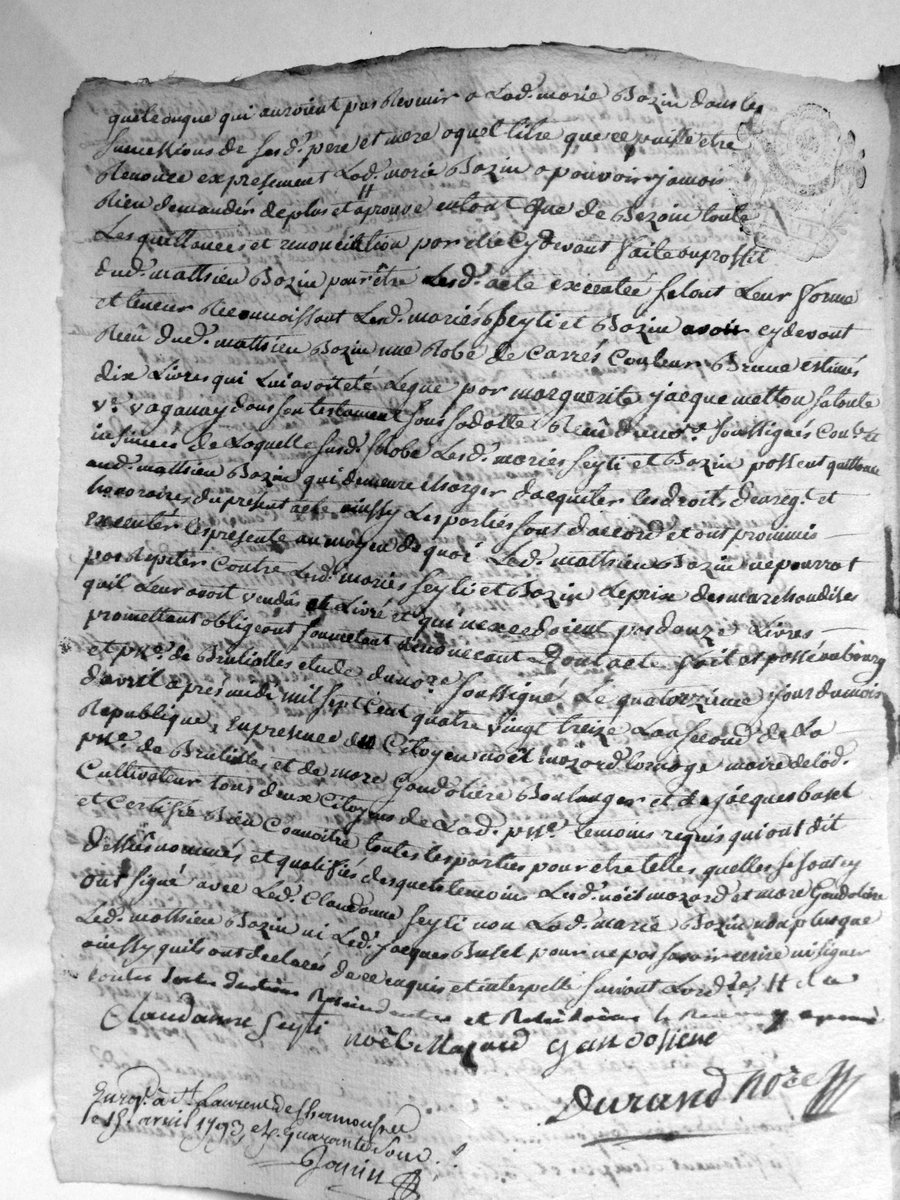 quelconque qui auroient pas Revenir a Lad.e marie Bozin dans les
successions de sesd. pere et mere a quel titre que ce puisse etre
Renonce expressement Lad.e marie Bozin a pouvoir jamais
Rien demander de plus et aprouve en tout que de Bezoin toute
Les quittances et renonciation par elle cy devant faite au proffit
dud. mathieu Bozin pour être Lesd. acte executée selont Leur forme
et teneur Reconnoissant Lesd. mariés Seyti et Bozin avoir cy devant
Reçû dud. mathieu Bozin une Robe de Carrés Couleur Brune estimés
dix Livres qui Lui avoit eté Legué par marguerite jacquemetton
v.e vaganay dans son testament Reçû du no.re soussignés
de Laquelle susd. Robe Lesd. mariés Seyti et Bozin passent quittance
aud. mathieu Bozin qui demeure Charger d'acquiter les droits d'enreg.t et
honoraires du present acte ainssy Les parties sont d'accord et ont prommis
executer les presente au moyen de quoi Led. mathieu Bozin ne pourrat
pas repiter Contre Lesd. mariés Seyti et Bozin le prix des marchandises
quil Leur avoit vendûs et Livré et qui n'excedoient pas donze Livres
promettant obligeant soumetant renonceant Dont acte fait et passé au bourg
et p.sse de Brullioles etude du no.re soussigné Le quatorzieme jour du mois
d'avril apres midi mil sept cent quatre vingt treize L'an second de La
Republique, en presence du Citoyen noël mazard maire de lad.
p.sse de Brullioles et de marc Gondoliere Boulanger et de jacques basset
Cultivateur tous deux Citoyens de Lad. p.sse temoins requis qui ont dit
et Certifié Bien Connoitre toutes les parties pour etre telles quelles se sont cy
dessus nommés et qualifiés desquels temoins Lesd. noël mazard et marc Gondoliere
ont signé avec Led. Claudonne Seyti non Lad. marie Bozin non plus que
Led. mathieu Bozin ni Led. jacques Basset pour ne pas savoir ecrire ni signer
ainssy quils ont declarés de ce enquis et interpellé suivant L'ord.ce
toutes sortes d'actions Rescindantes et Rescisoires
Claudanne Seyti noël Mazard Gandoliere
Durand No.re
Enreg. à S.t Laurent de Chamousset
le 18. avril 1793, et R. quarante sous
Janin